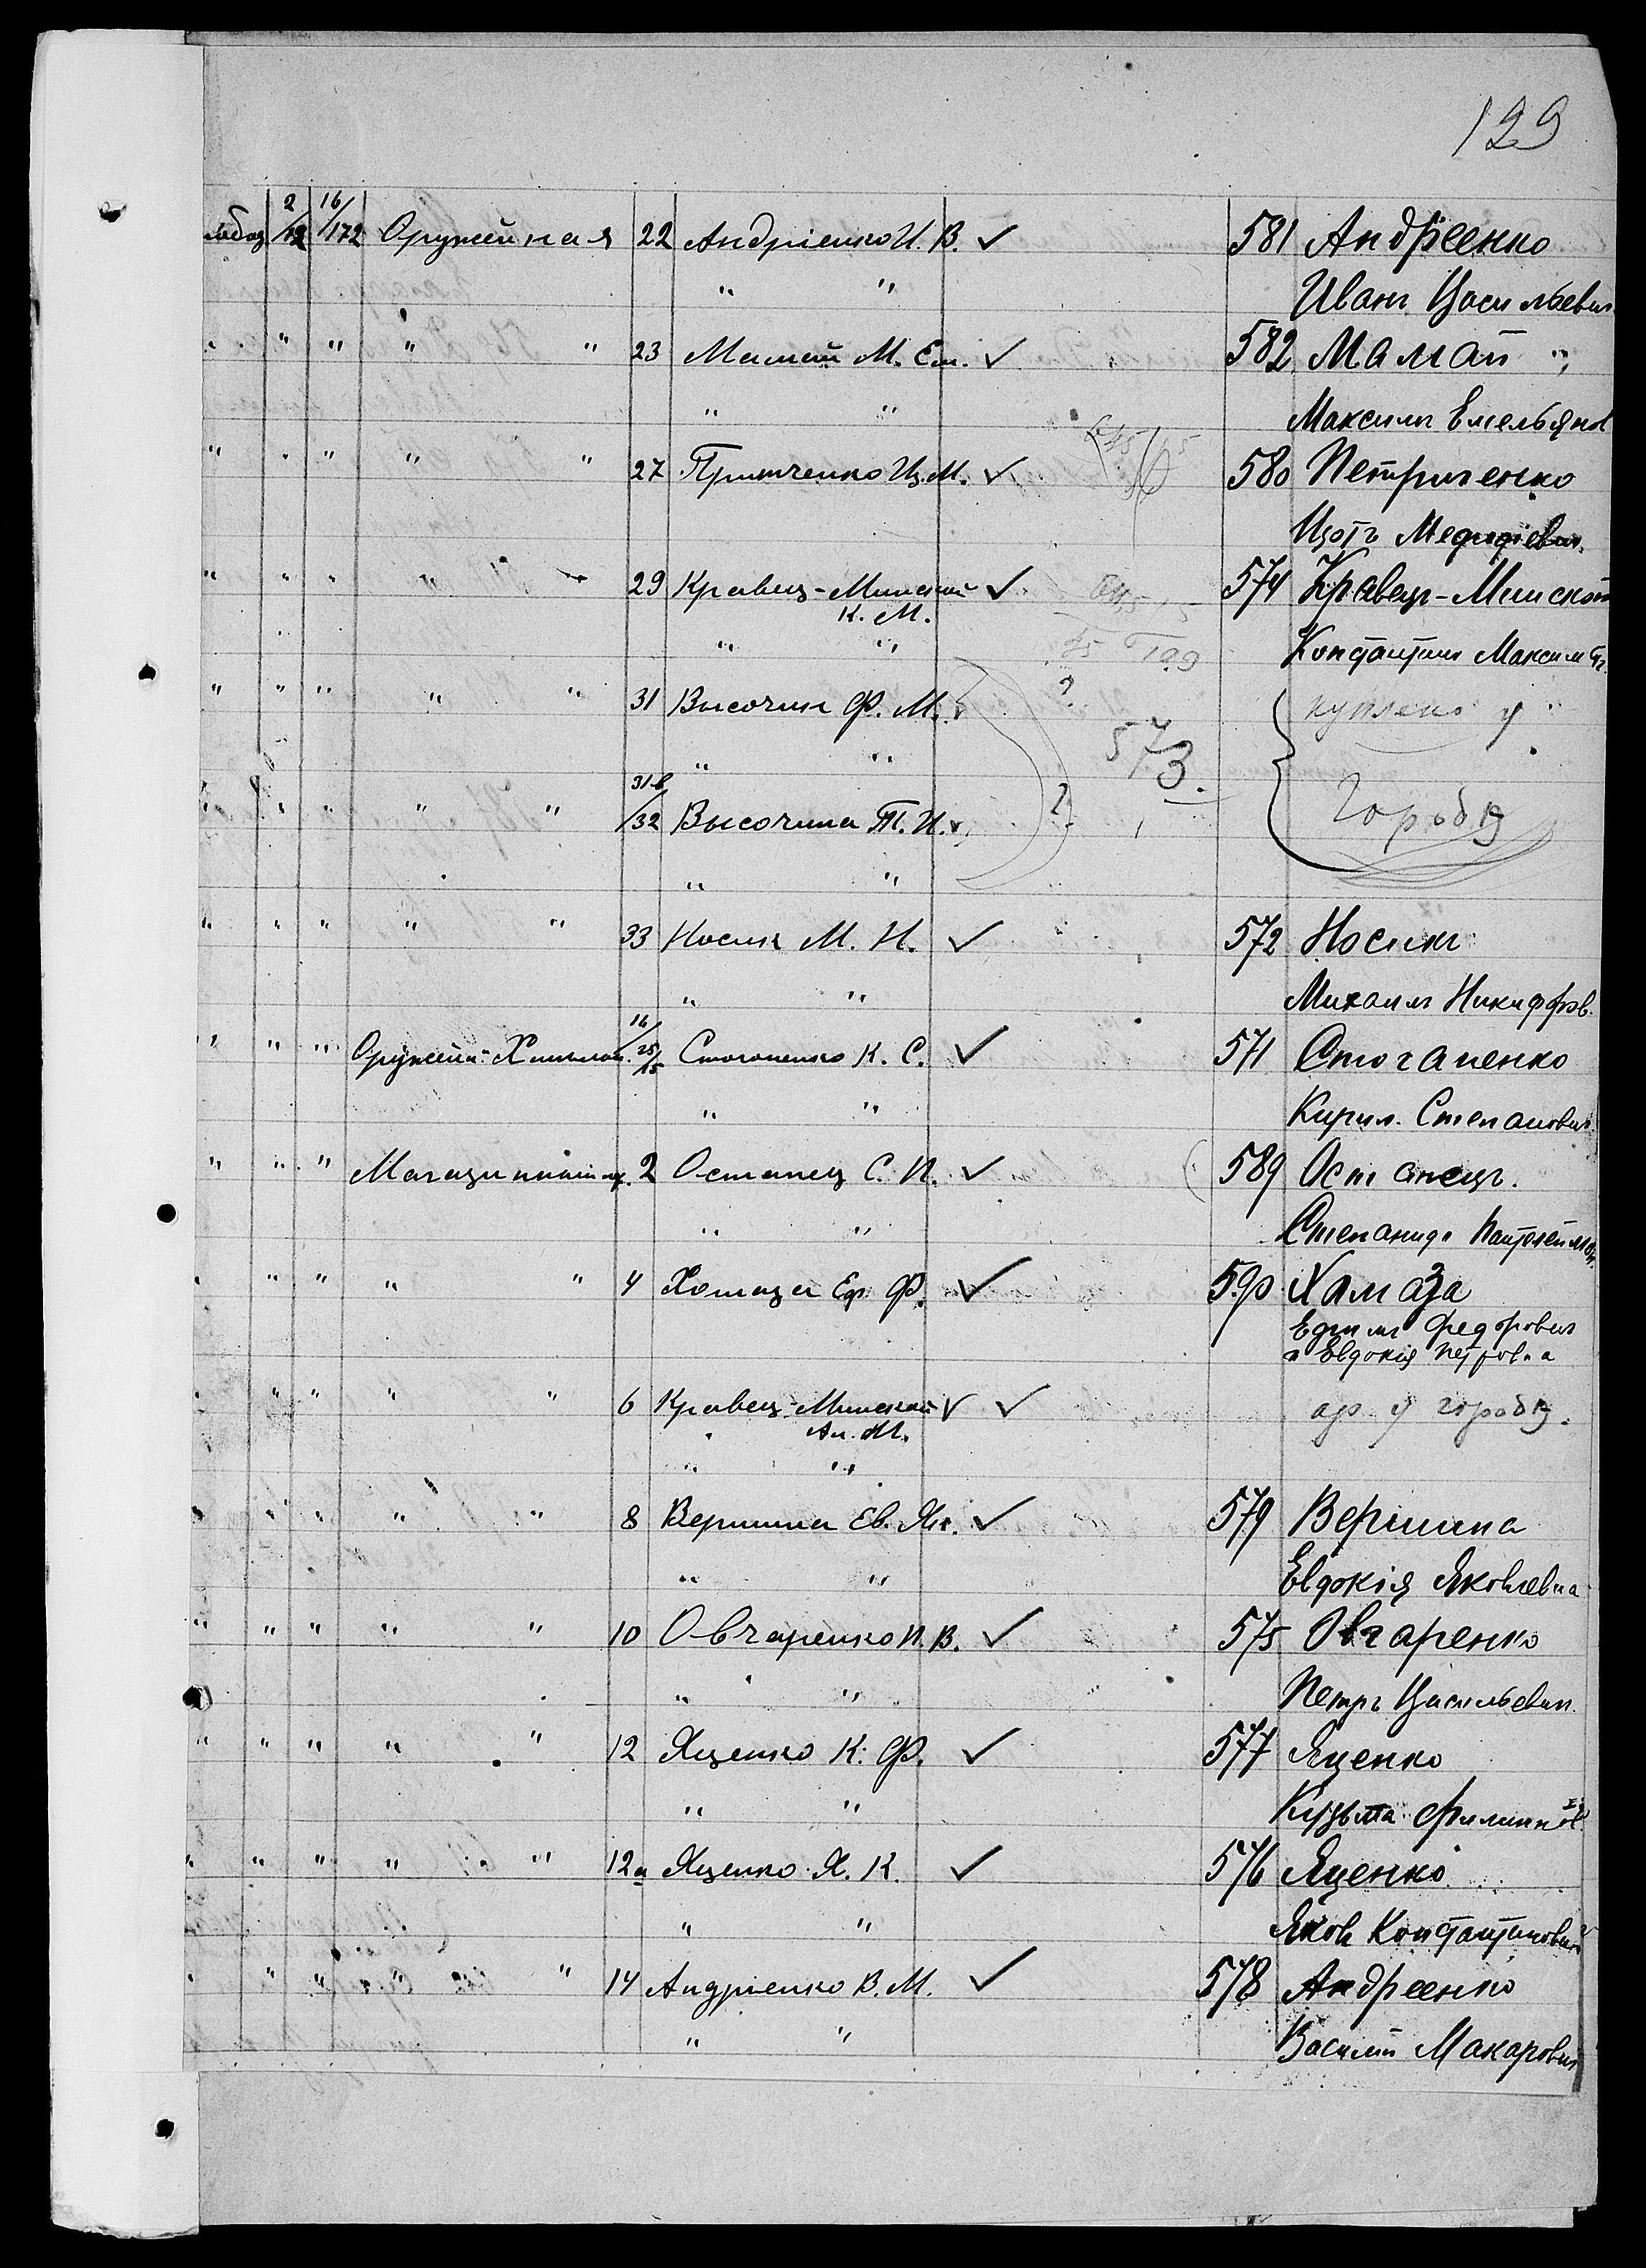 129
2/12 16/172 Оружейная 22 Андріенко И. В. ✓ 581 Андреенко
" " Иван Васильевич
" " " " 23 Мамай М. Ем. ✓ 582 Мамай "
" " Максим Емельянов
" " " " " 27 Притченко Из. М. ✓ 580 Петриченко
Изотъ
" " " " 29 Кравец-Минской ✓ 574 Кравец-Минской
К. М.
" " Константин Максим
" " " " " 31 Высочин Ф. М. ? куплено у
573
" "
31-в
" " " " " /32 Высочина Т. И. ? Городу
" "
" " " " " 33 Носик М. Н. ✓ 572 Носикъ
" " Михаилъ Никифоров.
" " " Оружейн. 16/25/15 Стогоненко К. С. ✓ 571 Стоганенко
" " Кирил. Степанович
" " " 2 Останец С. П. ✓ 589 Останецъ.
" " Степанида
" " " " " 4 Хомаза Еф. Ф. ✓ 590 Хамаза
Ефим Федорович
и Евдокія Петровна
" " " " " 6 Кравец-Минской ✓ ✓ ар. у городу.
Ан. М.
" "
" " " " " 8 Вершина Ев. Як. ✓ 579 Вершина
" " Евдокія Яковлевна
" " " " " 10 Овчаренко П. В. ✓ 575 Овчаренко
" " Петръ Васильевич
" " " " " 12 Яценко К. Ф. ✓ 577 Яценко
" " Кузьма Филиппов
" " " " " 12а Яценко Я. К. ✓ 576 Яценко
" " Яков Константинович
" " " " " 14 Андріенко В. М. ✓ 578 Андреенко
" " Василий Макарович